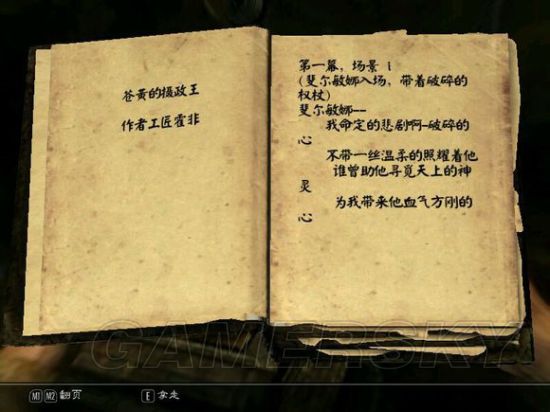 苍黄的摄政王
作者工匠霍非
第一幕，场景 1
(斐尔敏娜入场，带着破碎的
权杖)
斐尔敏娜--
我命定的悲剧啊-破碎的
心
不带一丝温柔的照耀着他
谁曾助他寻觅天上的神
灵
为我带来他血气方刚的
心
GAMERSKY
M1 M2 翻页
E 拿走